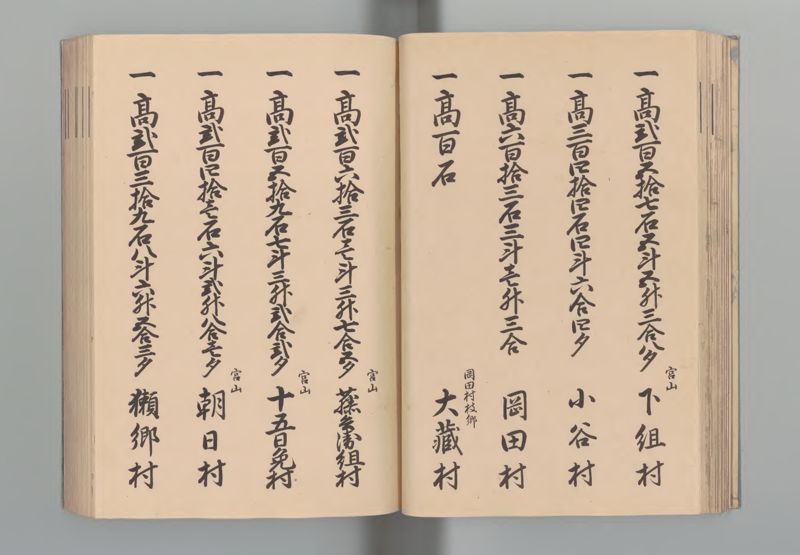 一高弐百五拾七石五斗五升三合八夕 宮山 下組村
一高三百四拾四石四斗六合四夕 小谷村
一高六百拾三石三斗壱升三合 岡田村
一高百石 岡田村枝郷 大蔵村
一高弐百六拾三石壱斗三升七合五夕 宮山 藤兵衛組村
一高弐百五拾九石七斗三升弐合弐夕 宮山 十五日免村
一高弐百四拾七石六斗弐升八合壱夕 宮山 朝日村
一高弐百三拾九石八斗六升五合三夕 獺郷村